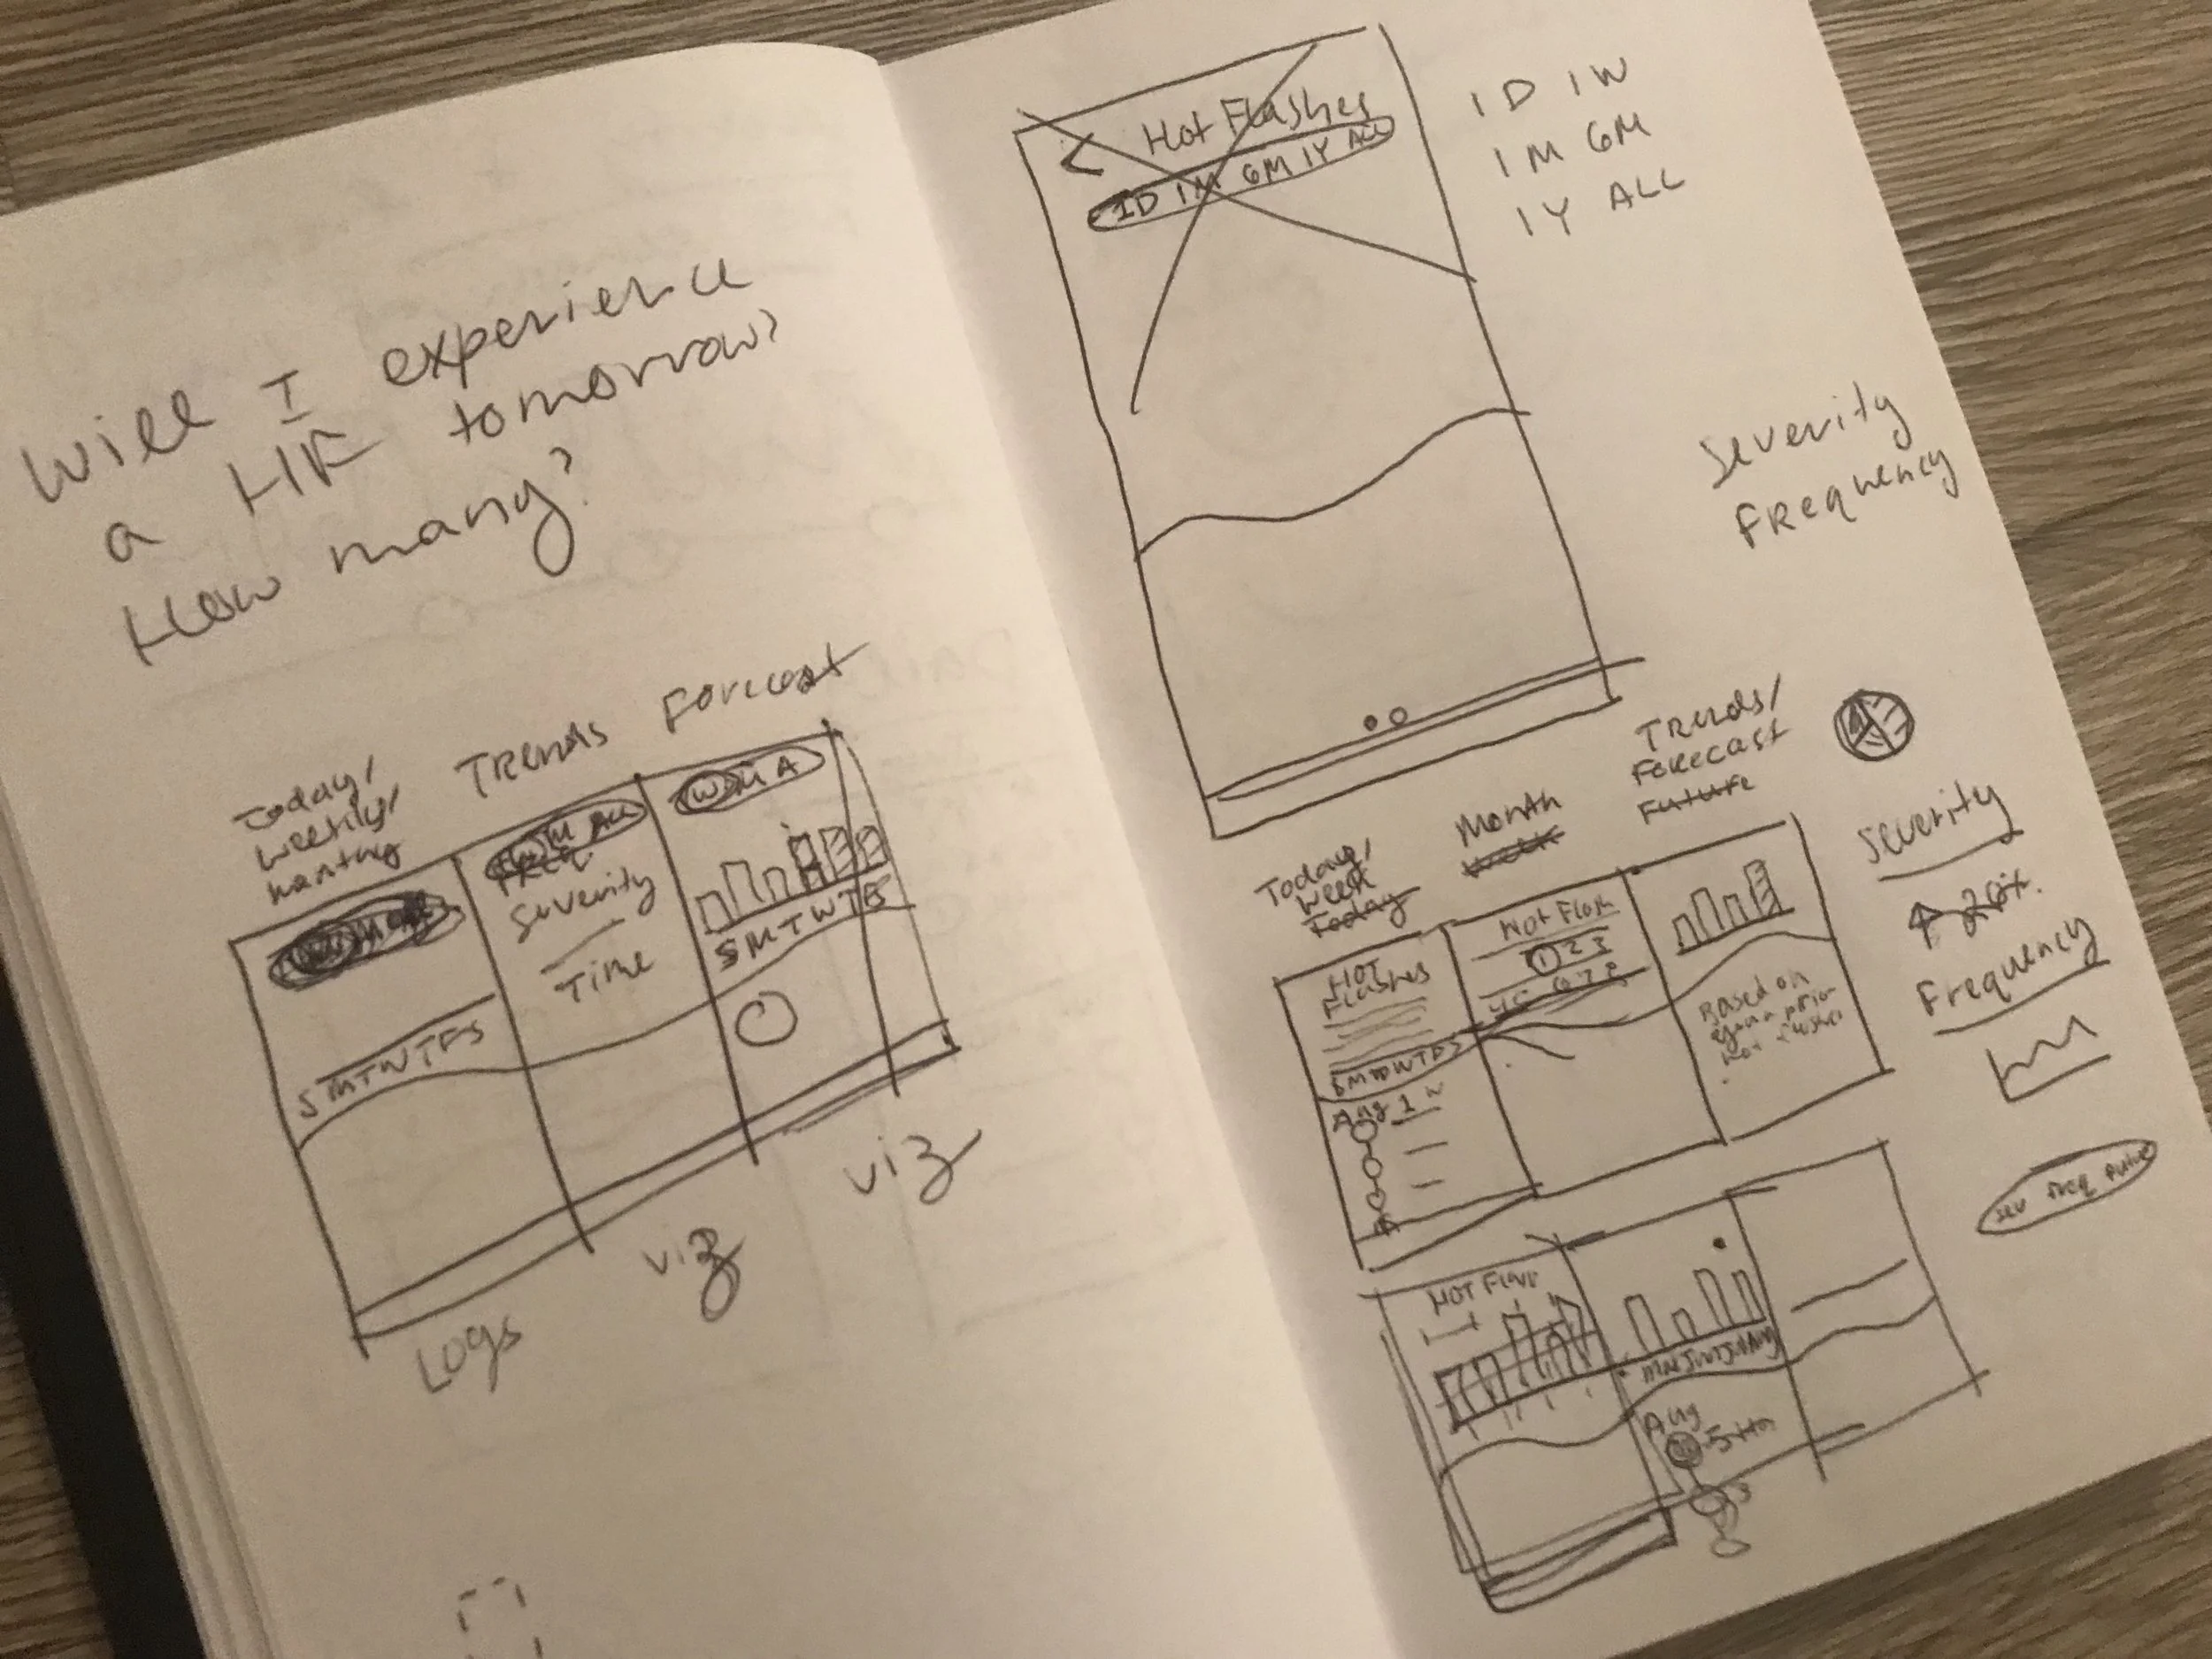 Will I experience
a HF tomorrow?
How many?
Today/
Weekly/
Trends
Forecast
ALL
Freq
Severity
Time
W M A
S M T W T F S
S M T W T F S
Logs
viz
viz
Hot Flashes
1D 1M 6M 1Y ALL
1D 1W
1M 6M
1Y ALL
Severity
Frequency
Today/
Week
Today
Month
Week
Trends/
Forecast
Future
HOT
Flashes
Aug 1
Hot Flash
1 2 3
4 5 6 7 8
Based on
your prior
hot flashes
Severity
↑ 20%.
Frequency
sev freq future
HOT FLASH
Mar Jun Jul Aug
Aug
5 HF
3